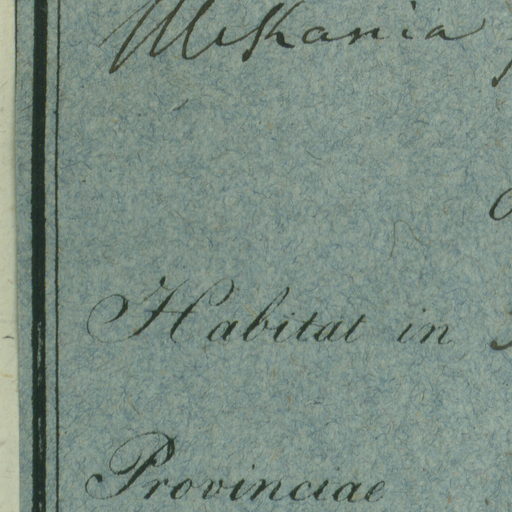 Mikania
Habitat in
Provinciae